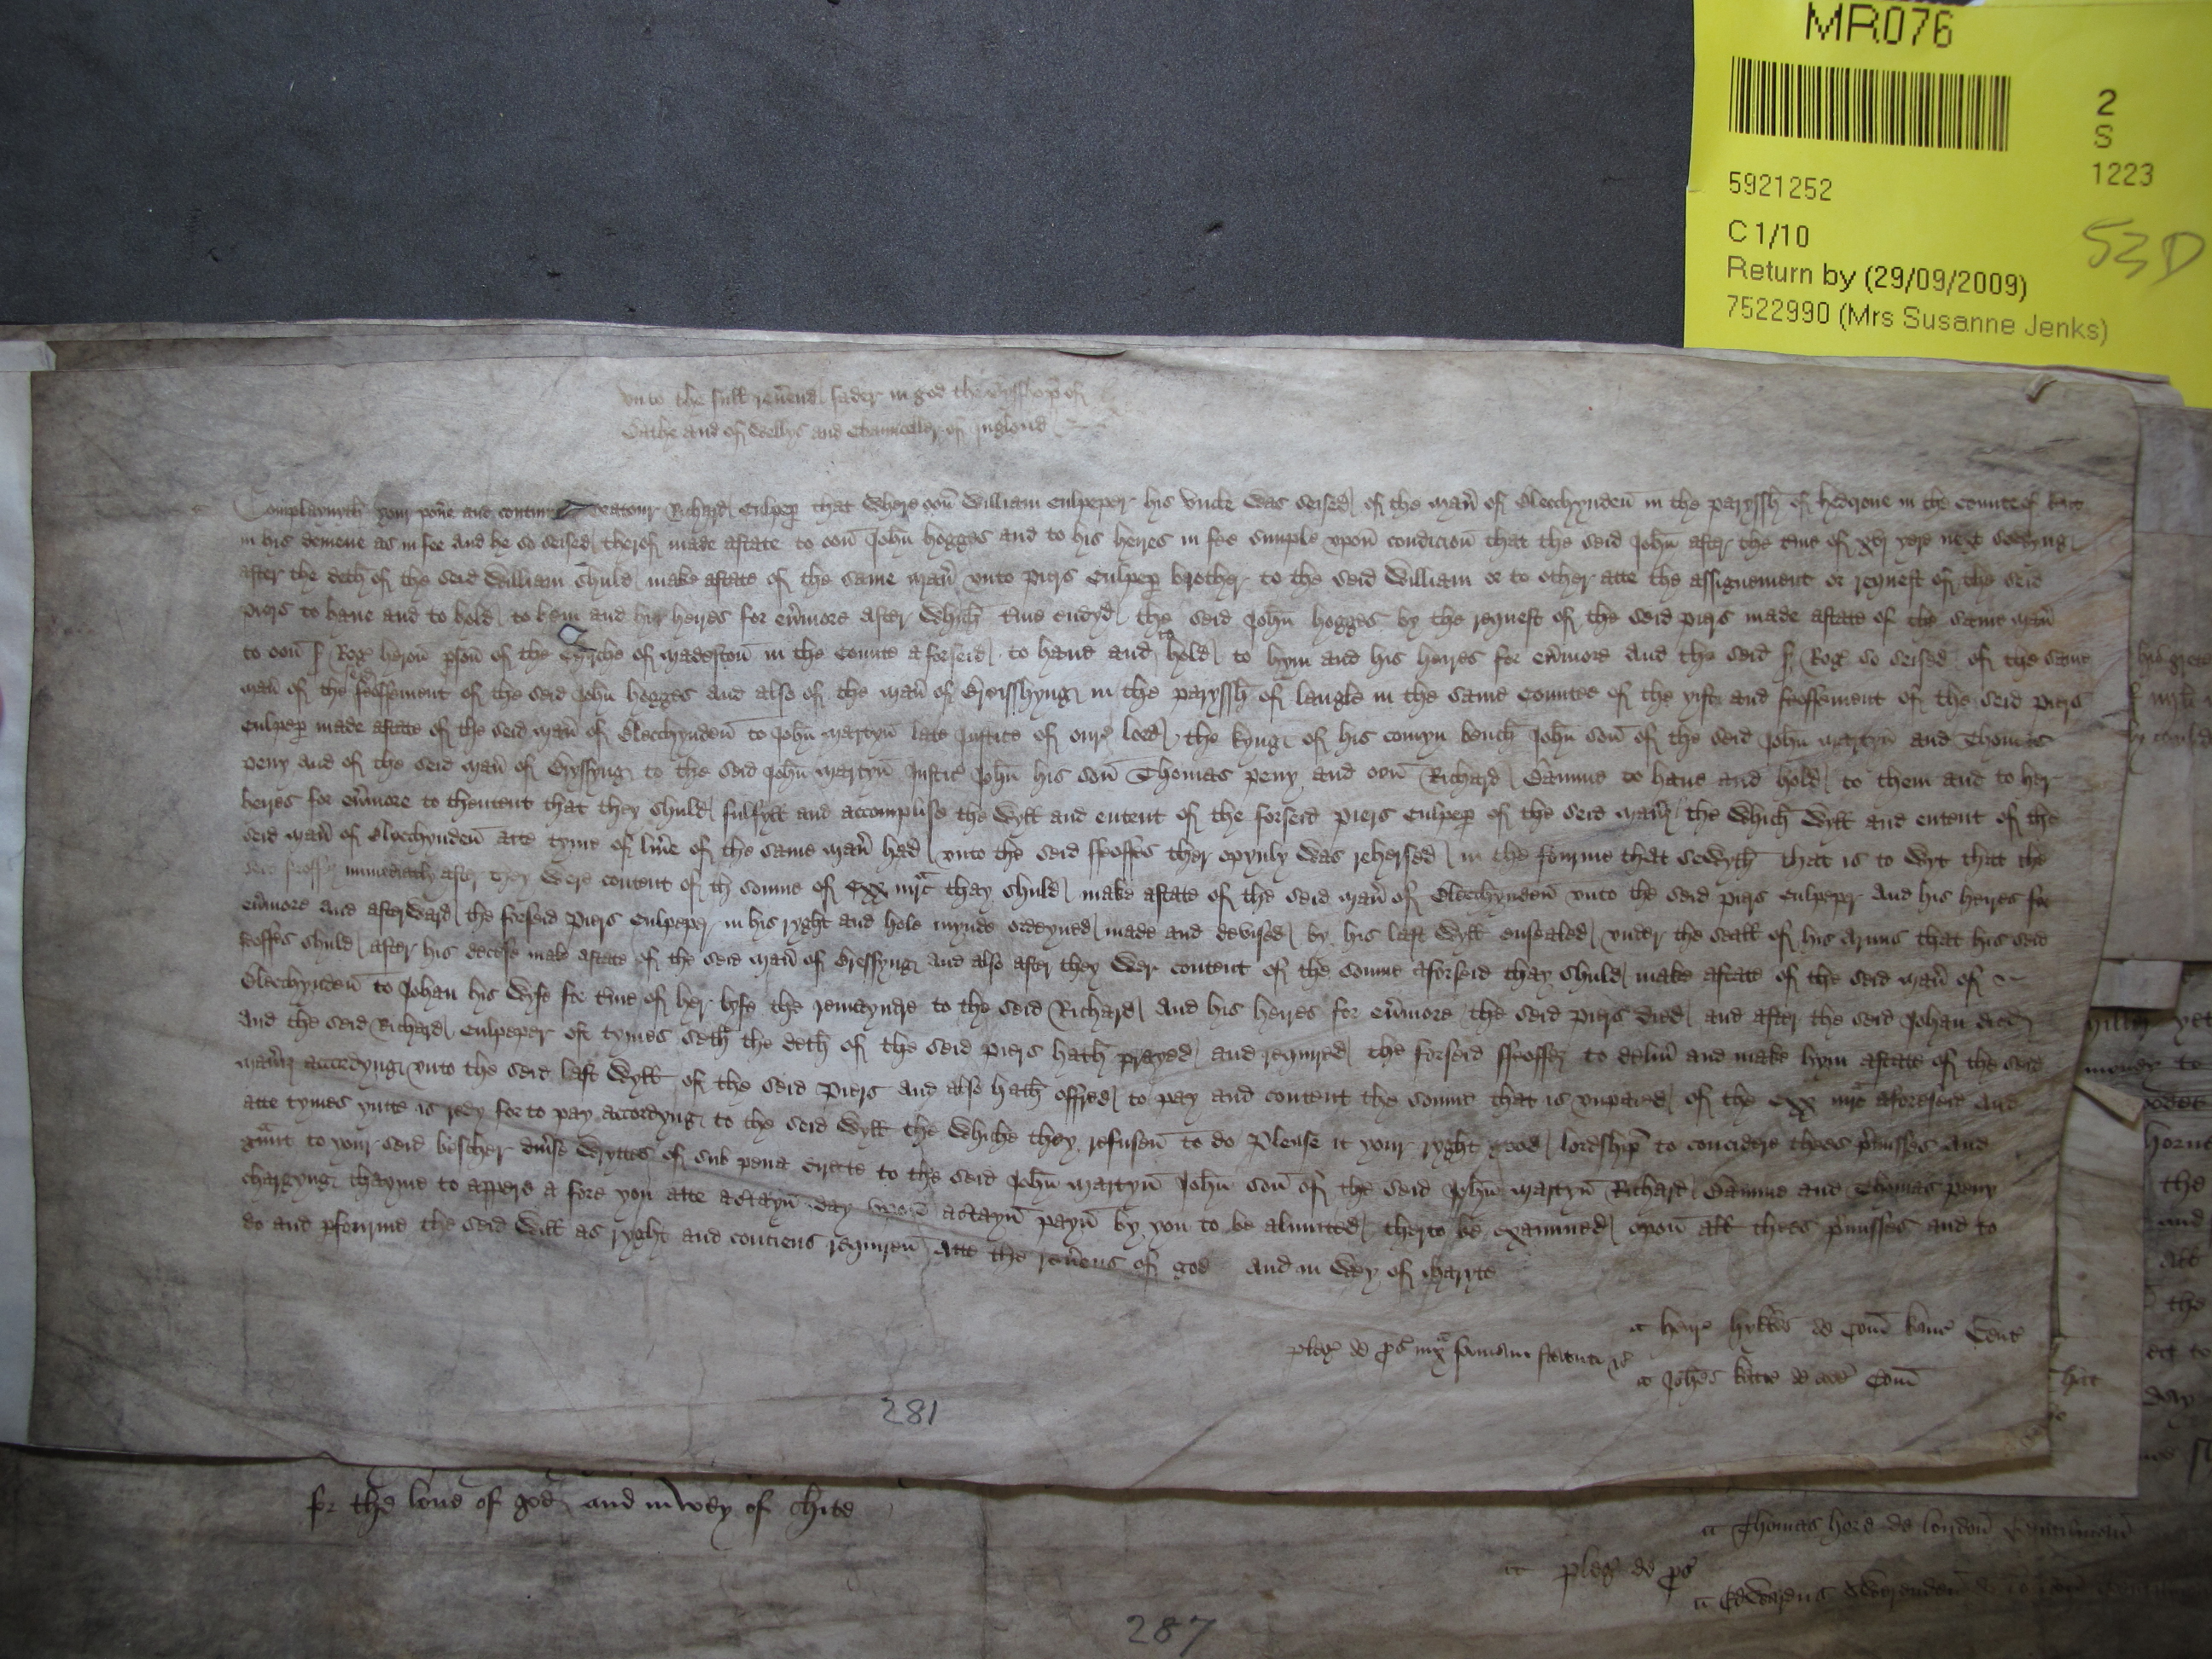 MR076
2
S
1223
5921252
C 1/10
53D
Return by (29/09/2009)
7522990 (Mrs Susanne Jenks)
vnto the full reuend fader in god the Bysshop of
Bathe and of Wellys and Chaunceller of Inglond
Complaynyth your pore and contin oratour Richard Culpep that where oon William Culpeper his Vncle was seised of the man of Blecchynden in the paryssh of hedcrone in the counte of kent
in his demene as in fee and he so seised therof made astate to oon John hogges and to his heires in fee simple vpon condicion that the seid John after the time of yere next sewyng
after the deth of the seid William shuld make astate of the same man vnto piers Culpep brother to the seid William or to other atte the assignement or request of the seid
piers to haue and to hold to hem and his heires for eumore after which time endyd the seid John hogges by the request of the seid piers made astate of the same man
to oon s Rog heron pson of the Chirche of Madeston in the Counte aforseid to haue and to hold to hym and his heires for eumore And the seid s Rog so seised of the same
man of the feoffement of the seid John hogges and also of the man of in the paryssh of langle in the same Countee of the yift and feoffement of the seid piers
Culpep made astate of the seid man of Blecchynden to John Martyn late Justice of oure lord the kyng of his comyn bench John son of the seid John Martyn and Thomas
peny and of the seid man of to the seid John Martyn Justic John his son Thomas peny and oon Richard to haue and hold to them and to her
heires for eumore to thentent that they shuld fulfyll and accomplise the Wyll and entent of the forseid piers Culpep of the seid man the which Wyll and entent of the
seid man of Blecchynden atte tyme of liue of the same man had vnto the seid feoffes ther opynly was rehersed in the fourme that sewyth that is to wyt that the
seid feoffes immediatly after they were content of th somme of Cxx mrc thay shuld make astate of the seid man of Blecchynden vnto the seid piers Culpeper And his heires for
eumore And afterward the forseid Piers Culpeper in his ryght and hole mynde ordeyned made and devised by his last Wyll ensealed vnder the seall of his Armes that his seid
feoffes shuld after his decese make astate of the seid man of and also after they wer content of the somme aforseid thay shuld make astate of the seid man of
Blecchynden to Johan his Wyfe for time of her lyfe the remayndre to the seid Richard And his heires for eumore the seid piers died and after the seid Johan died
And the seid Richard Culpeper oft tymes seth the deth of the seid piers hath prayed and required the forseid ffeoffes to deliu and make hym astate of the seid
man accordyng vnto the seid last Wyll of the seid Piers And also hath offred to pay and content the somme that is vnpaied of the Cxx mrc aforeseid And
atte tymes yutte is redy for to pay accordyng to the seid Wyll the Whiche they refusen to do Please it your ryght good lordship to concidere thees pmisses and
graunt to your seid besecher diuse Wryttes of sub pena directe to the seid John Martyn John son of the seid John Martyn Richard and Thomas Peny
chargyng thayme to appere a fore you atte a certayn day vpon a certayn payn by you to be limitted therto be examined opon all thees pmisses and to
do and pfourme the seid Will as ryght and conciens requiren Atte the reuens of god And in Wey of charyte
pleg de ps
henr de Com kanc
Johes de eod Com
281
for the loue of god and in wey of chite
Thomas hore de london
pleg de ps
Edwardus
287